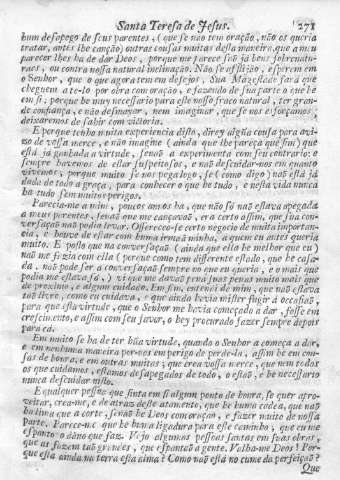 Santa Teresa de Jesus. 271
hum desapego de seus parentes, (que se não tem oração, não os queria
tratar, antes lhe canção) outras cousas muitas desta maneira, que a meu
parecer lhes ha de dar Deos, porque me parece saõ já bens sobrenatu-
raes, ou contra nossa natural inclinação. Não se afflijão, esperem em
o Senhor, que o que agora tem em desejos, Sua Magestade fará que
cheguem a telo por obra com oração, e fazendo de sua parte o que he
em si; porque he muy necessario para este nosso fraco natural, ter gran-
de confiança, e não desmayar, nem imaginar, que se nos esforçamos,
deixaremos de sahir com vittoria.
E porque tenho muita experiencia disto, direy algũa cousa para avi-
zo de vossa merce, e não imagine (ainda que lhe pareça que sim) que
está já ganhada a virtude, senaõ a experimenta com seu contrario: e
sempre havemos de estar suspeitosos, e naõ descuidar-nos em quanto
vivemos, porque muito se nos pega logo, se (como digo) naõ está já
dada de todo a graça, para conhecer o que he tudo, e nesta vida nunca
ha tudo sem muitos perigos.
Parecia-me a mim, poucos annos ha, que não só naõ estava apegada
a meus parentes, senaõ que me cançavaõ, era certo assim, que sua con-
versaçaõ naõ podia levar. Offereceo-se certo negocio de muita importan-
cia, e houve de estar com huma irmaã minha, a quem eu antes queria
muito. E posto que na conversaçaõ (ainda que ella he melhor que eu)
naõ me fazia com ella (porque como tem differente estado, que he casa-
da, naõ pode ser a conversaçaõ sempre no que eu queria, e o mais que
podia me estava só,) vi que me davaõ pena suas penas muito mais que
de proximo, e algum cuidado. Em fim, entendi de mim, que naõ estava
taõ livre, como eu cuidava, e que ainda havia mister fugir á occasiaõ,
para que esta virtude, que o Senhor me havia começado a dar, fosse em
crescimento, e assim com seu favor, o hey procurado fazer sempre depois
para cá.
Em muito se ha de ter hũa virtude, quando o Senhor a começa a dar,
e em nenhuma maneira por-nos em perigo de perde-la, assim he em cou-
sas de honra, e em outras muitas; que crea vossa merce, que nem todos
os que cuidamos, estamos desapegados de todo, o estaõ, e he necessario
nunca descuidar nisto.
E qualquer pessoa que sinta em si algum ponto de honra, se quer apro-
veitar, crea-me, e de atras deste atamento, que he huma cadea, que naõ
ha lima que a corte, senaõ he Deos com oraçaõ, e fazer muito de nossa
parte. Parece-me que he huma ligadura para este caminho, que eu me
espanto o dano que faz. Vejo algumas pessoas santas em suas obras,
que as fazem taõ grandes, que espantaõ a gente. Valha-me Deos! Por-
que está ainda na terra esta alma? Como naõ está no cume da perfeiçaõ?
Que